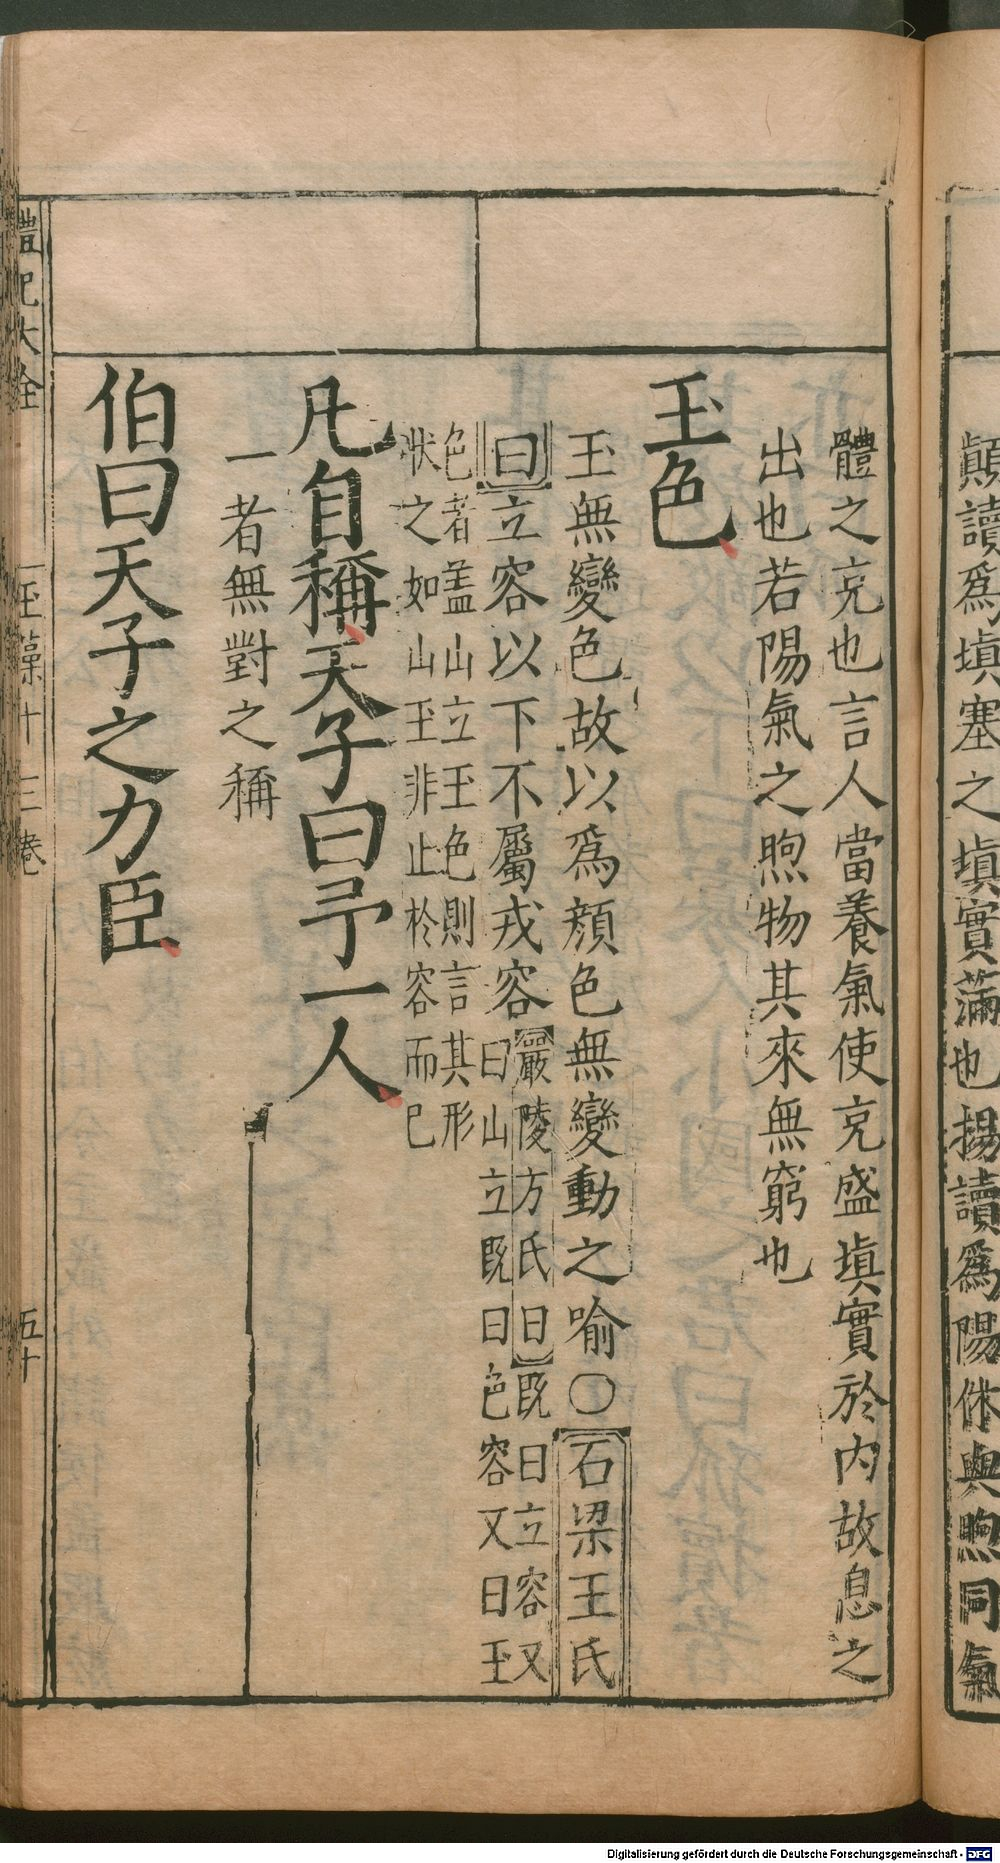 顛讀爲塡塞之塡實滿也揚讀爲陽休與煦同氣
體之充也言人當養氣使充盛塡實於内故息之
出也若陽氣之煦物其來無窮也
玉色
玉無變色故以爲顔色無變動之喻〇石梁王氏
曰立容以下不屬戎容嚴陵方氏曰既曰立容又
曰山立既曰色容又曰玉
色者盖山立玉色則言其形
狀之如山玉非止於容而已
凡自稱天子曰予一人
一者無對之稱
伯曰天子之力臣
禮記大全
玉藻十三卷
五十
Digitalisierung gefördert durch die Deutsche Forschungsgemeinschaft - DFG